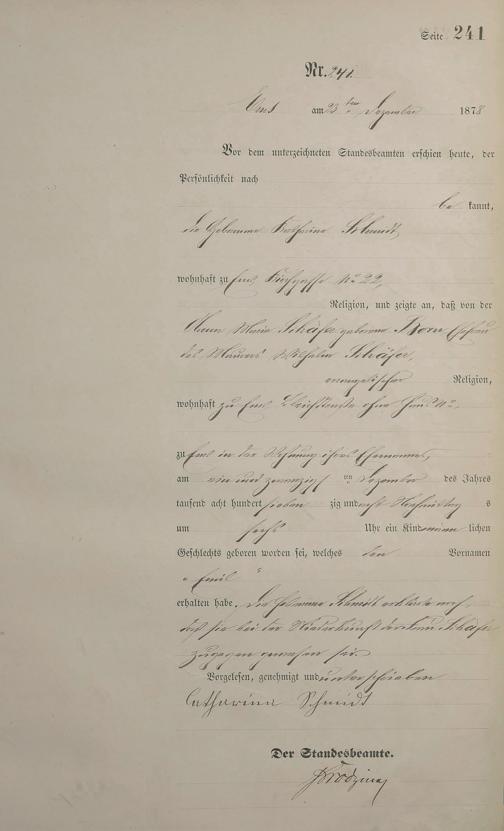 Seite 241
Nr. 241.
Ems am 23ten Dezember 1878
Vor dem unterzeichneten Standesbeamten erschien heute, der
Persönlichkeit nach
be kannt,
die Hebamme Katharina Schmidt,
wohnhaft zu Ems Kirchgasse No 22,
Religion, und zeigte an, daß von der
Anna Maria Schäfer geborene Born Ehefrau
des Maurers Wilhelm Schäfer,
evangelischer Religion,
wohnhaft zu Ems ohne Haus No.
zu Ems in der Wohnung ihres Ehemannes,
am ein und zwanzigsten Dezember des Jahres
tausend acht hundert sieben zig und acht Nachmittag s
um sechs Uhr ein Kind männ lichen
Geschlechts geboren worden sei, welches den Vornamen
„Emil“
erhalten habe. Die Hebamme Schmidt erklärte noch,
daß sie bei der Niederkunft der Frau Schäfer
zugegen gewesen sei.
Vorgelesen, genehmigt und unterschrieben
Catharina Schmidt
Der Standesbeamte.